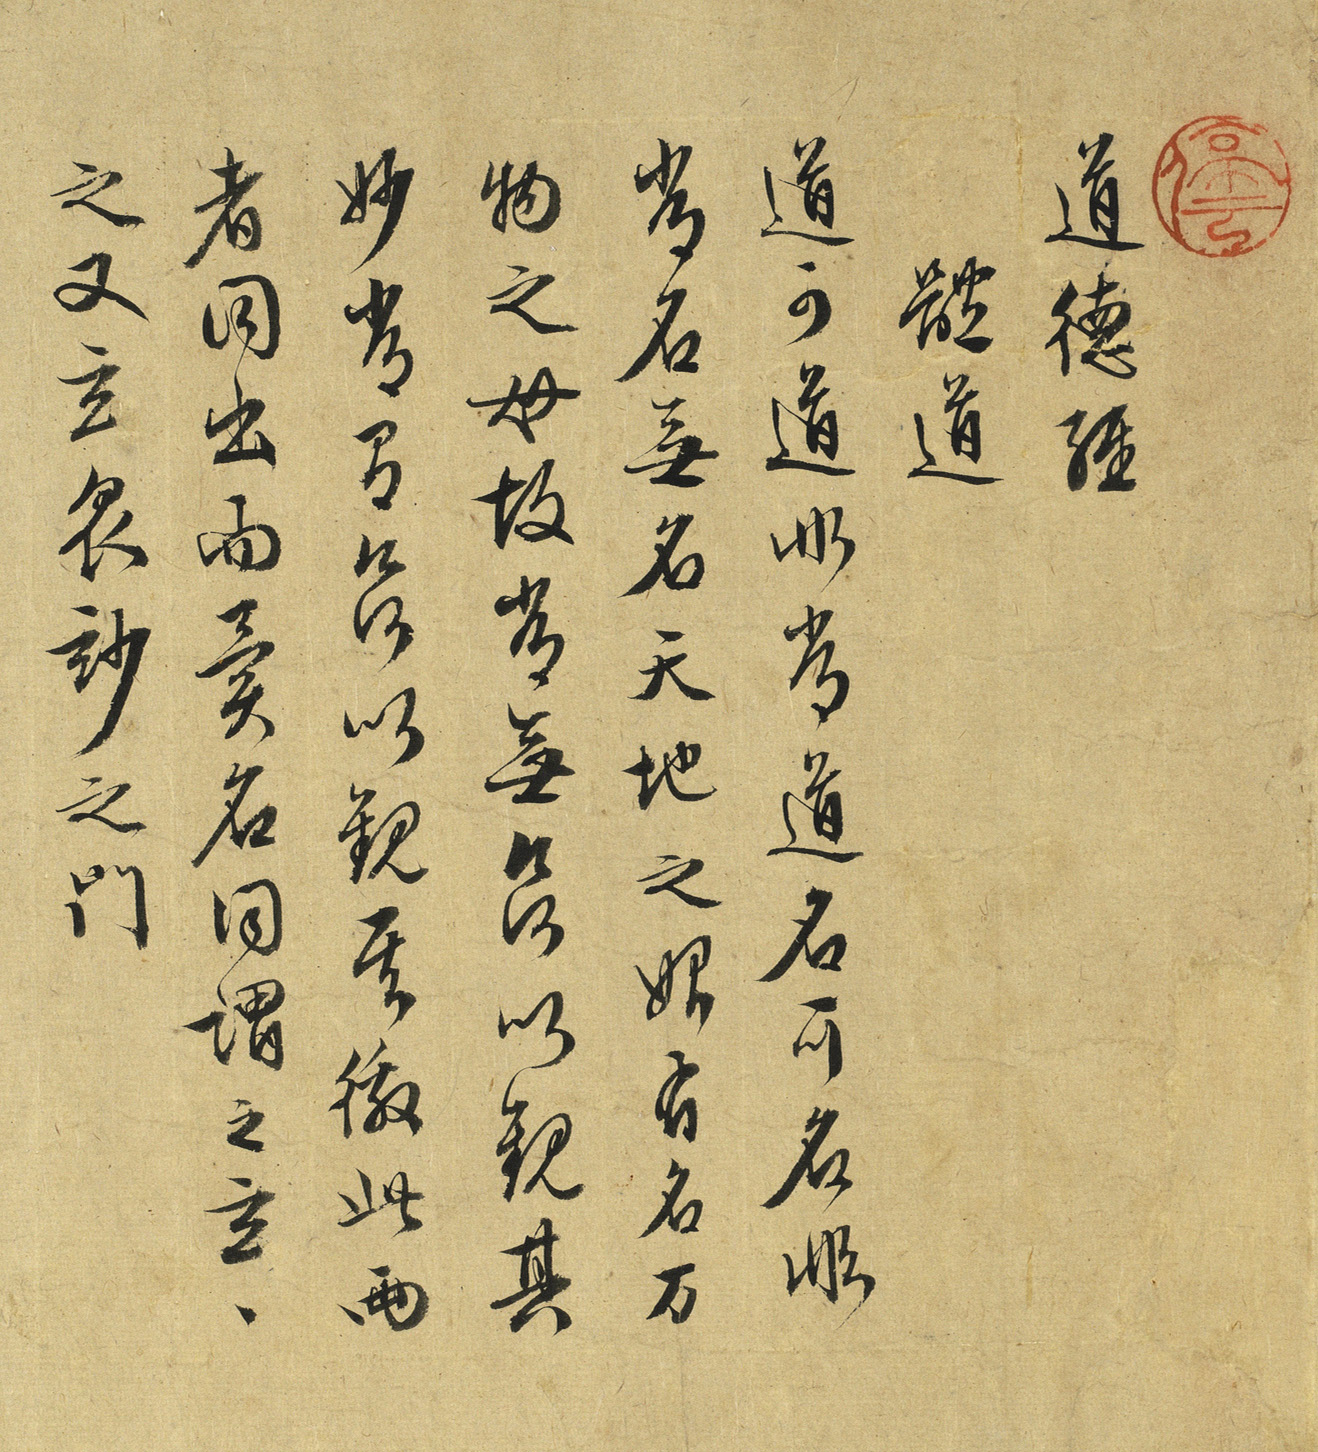 道德經
體道
道可道非常道名可名非
常名無名天地之始有名万
物之母故常無欲以觀其
妙常有欲以觀其徼此兩
者同出而異名同謂之玄〻
之又玄衆妙之門